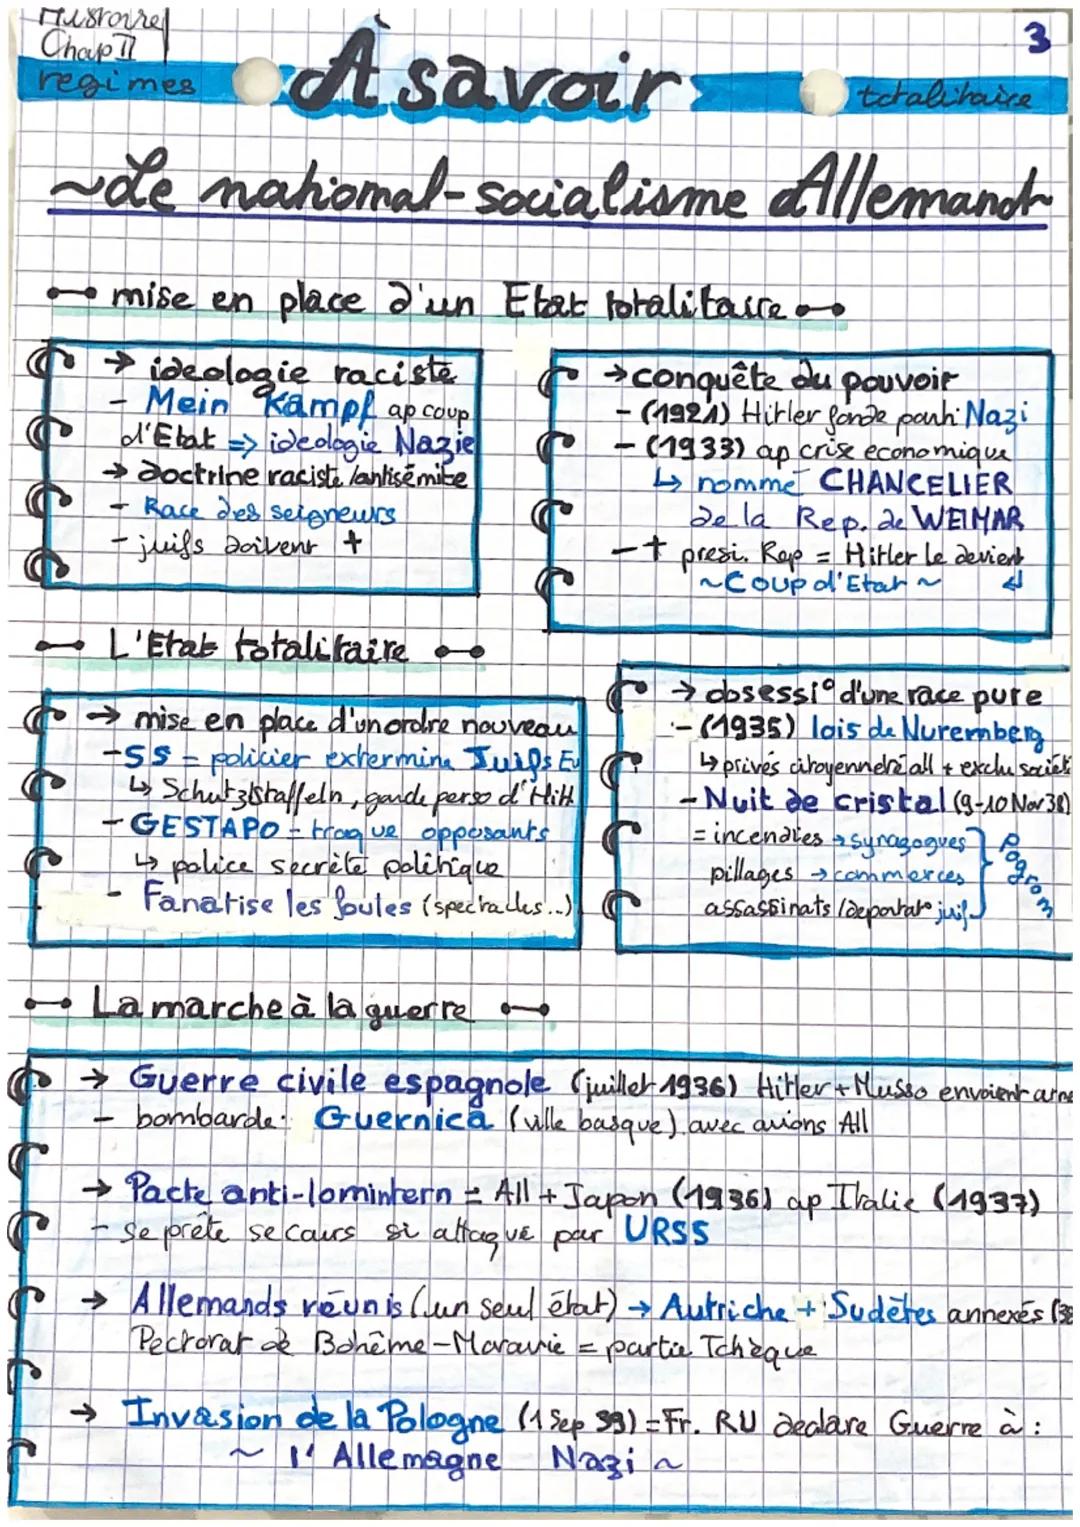 Histoire
Chap II
3
regimes
À savoir
totalitaire
~ Le national-socialisme Allemand
mise en place d'un Etat totalitaire
→ ideologie raciste
- Mein Kampf ap coup
d'Etat => ideologie Nazie
→ doctrine raciste / antisémite
- Race des seigneurs
- juifs doivent †
→ conquête du pouvoir
- (1921) Hitler fonde parti Nazi
- (1933) ap crise economique
↳ nommé CHANCELIER
de la Rep. de WEIMAR
- † presi. Rep = Hitler le devient
~ Coup d'Etat ~
L'Etat totalitaire
→ mise en place d'un ordre nouveau
- SS = policier extermine Juifs Eu
↳ Schutzstaffeln, garde perso d'Hitl
- GESTAPO - traque opposants
↳ police secrète politique
- Fanatise les foules (spectacles...)
→ obsessi° d'une race pure
- (1935) lois de Nuremberg
↳ privés citoyenneté all + exclu société
- Nuit de cristal (9-10 Nov 38)
= incendies → synagogues
pillages → commerces
assassinats / déportat° juif
Pogrom
La marche à la guerre
→ Guerre civile espagnole (juillet 1936) Hitler + Musso envoient arme
- bombarde: Guernica (ville basque) avec avions All
→ Pacte anti-lomintern = All + Japon (1936) ap Italie (1937)
- se prête secours si attaqué par URSS
→ Allemands réunis (un seul état) → Autriche + Sudètes annexés (38
Pectorat de Bohême-Moravie = partie Tchèque
→ Invasion de la Pologne (1 Sep 39) = Fr. RU declare Guerre à :
~ l'Allemagne Nazi ~